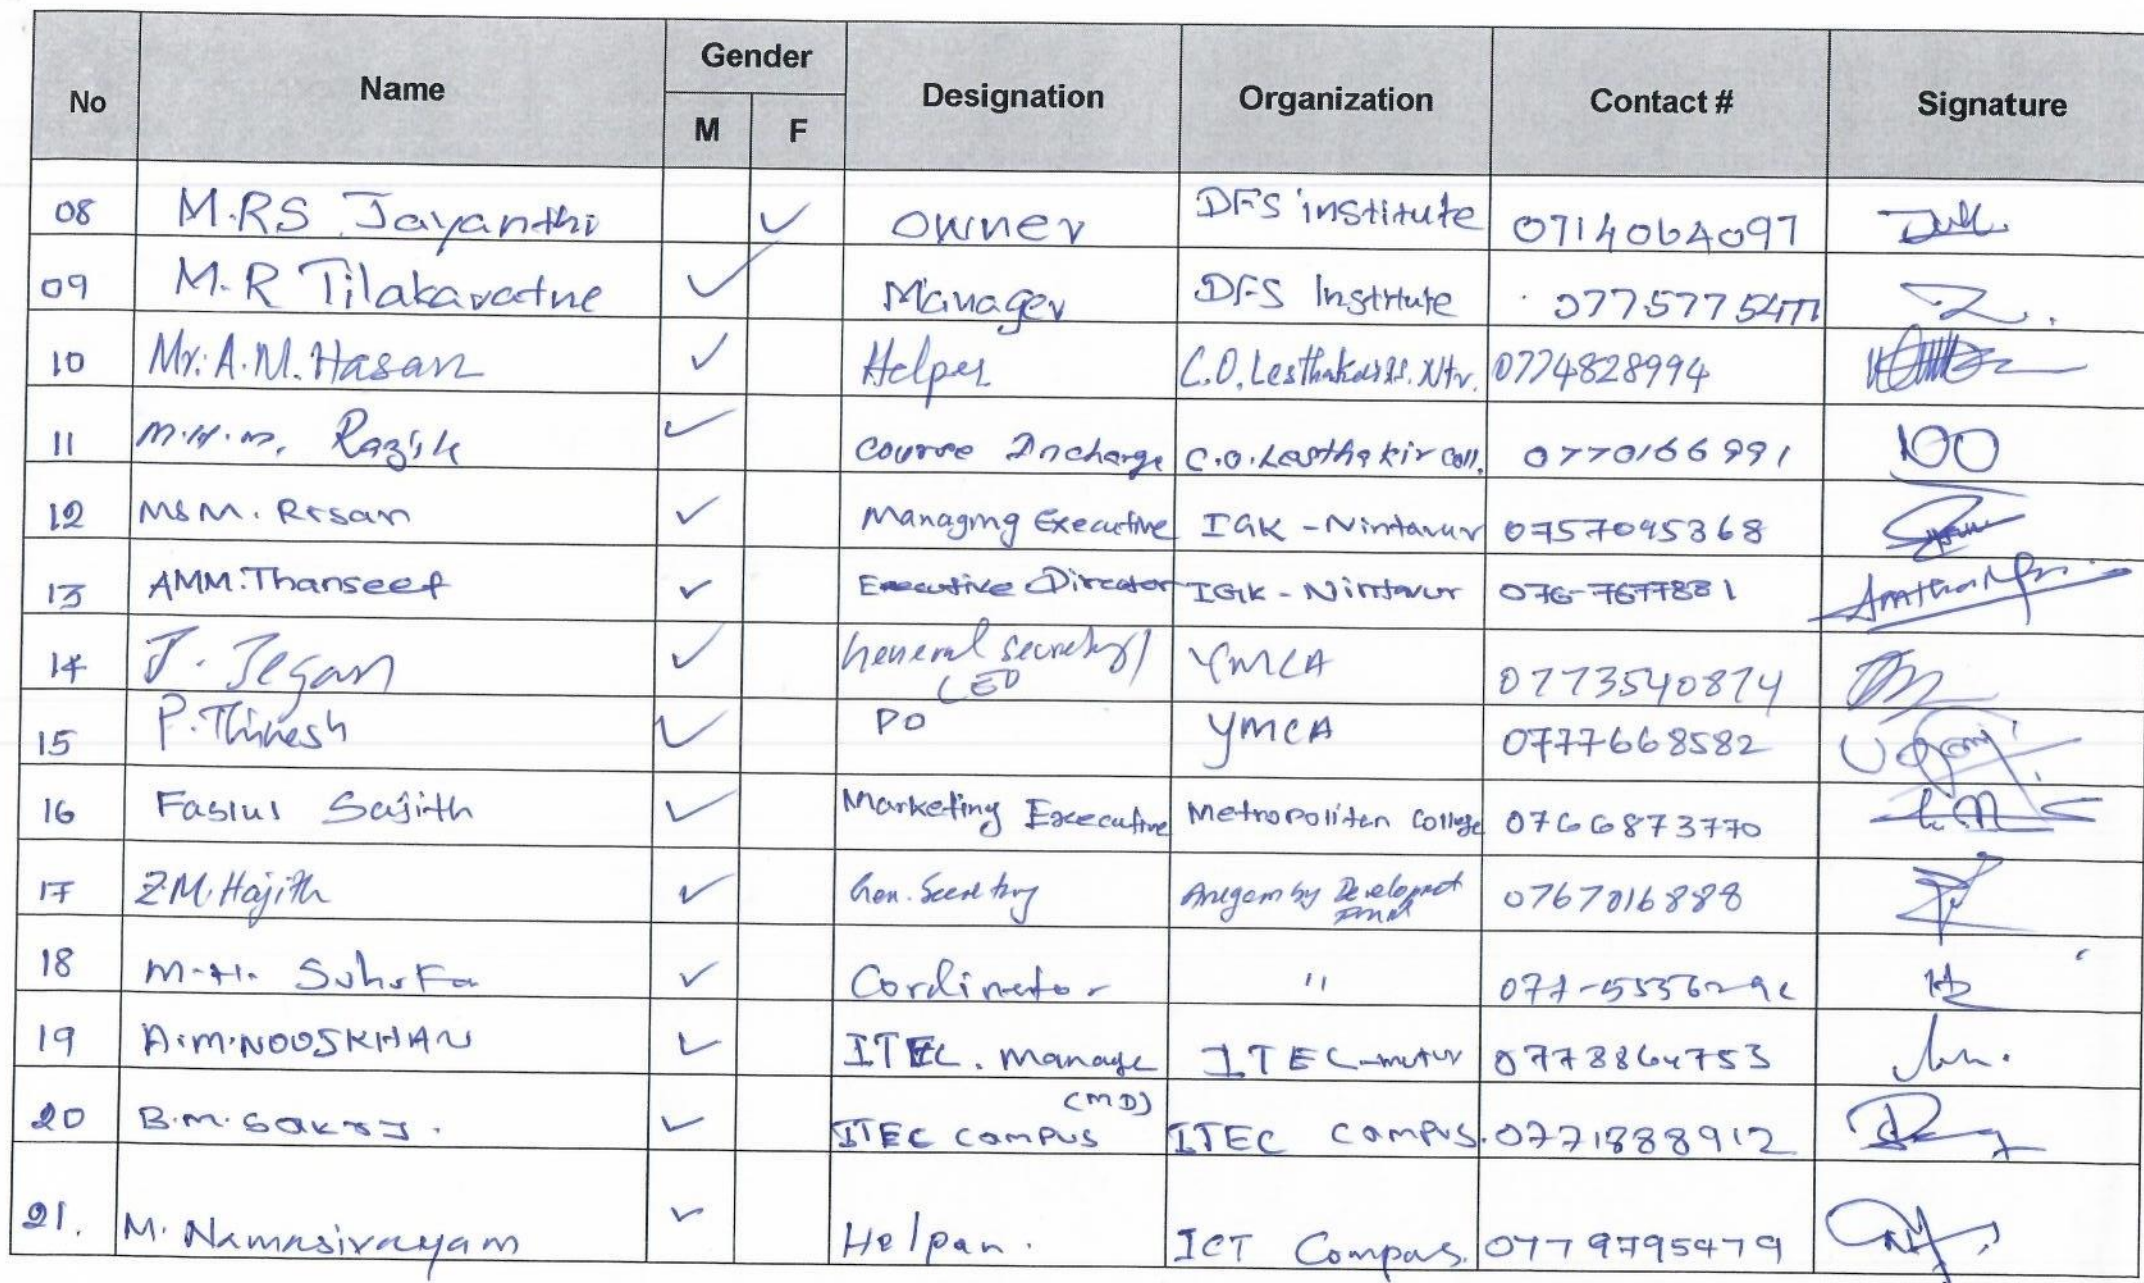 No Name Gender Designation Organization Contact # Signature
M F
08 M.RS Jayanthi owner DFS institute 0714064097
09 M.R Tilakaratne Manager DFS Institute
10 Mr. A.M. Hasan Helper 0774828994
11 M.H.M. Razik Course Incharge 0770166991
12 MSM. Rrsan Managing Executive IGK - Nintavur 0757095368
13 AMM. Thanseef Executive Director IGK - Nintavur 076-7677881
14 J. Jegan General secretary/ YMCA 0773540874
CEO
15 P. Thinesh PO YMCA 0777668582
16 Faslul Sajith Marketing Excecutive Metropolitan College 0766873770
17 Z.M. Hajith Gen. Secretary 0767016888
18 M.H. Cordinator "
19 A.M. NOOSKHAN ITEC. Manage ITEC-mutur 0778864753
20 B.M. (MD) ITEC Campus. 0771888912
ITEC Campus
21. M. Namasivayam Helpan. ICT Compas. 0779795479